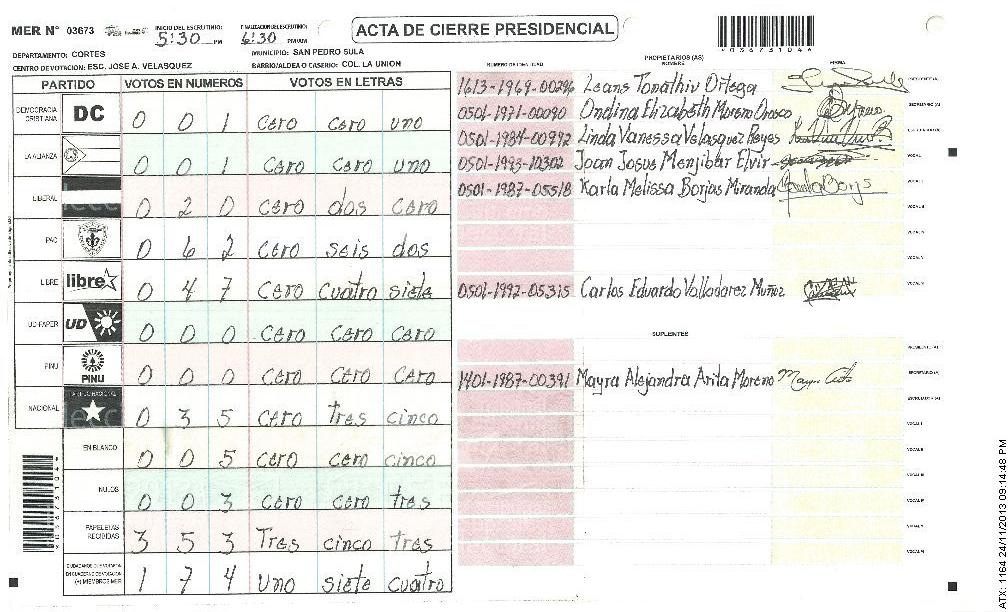 MER Nº 03673
INICIO DEL ESCRUTINIO: 5:30 PM
FINALIZACION DEL ESCRUTINIO: 6:30 PM
ACTA DE CIERRE PRESIDENCIAL
*036731046*
DEPARTAMENTO: CORTES
MUNICIPIO: SAN PEDRO SULA
CENTRO DE VOTACION: ESC. JOSE A. VELASQUEZ
BARRIO/ALDEA O CASERIO: COL. LA UNION
PARTIDO VOTOS EN NUMEROS VOTOS EN LETRAS
DEMOCRACIA CRISTIANA DC 0 0 1 cero cero uno
LA ALIANZA 0 0 1 cero cero uno
LIBERAL 0 2 0 cero dos cero
PAC 0 6 2 cero seis dos
LIBRE libre 0 4 7 cero cuatro siete
UD-FAPER UD 0 0 0 cero cero cero
PINU PINU 0 0 0 cero cero cero
NACIONAL 0 3 5 cero tres cinco
EN BLANCO 0 0 5 cero cero cinco
NULOS 0 0 3 cero cero tres
PAPELETAS RECIBIDAS 3 5 3 Tres cinco tres
1 7 4 uno siete cuatro
*036731046*
PROPIETARIOS (AS)
NUMERO DE IDENTIDAD NOMBRE FIRMA
1613-1969-00296 Leans Tonathiv Ortega PRESIDENTE (A)
0501-1971-00090 Ondina Elizabeth Moreno Orosco SECRETARIO (A)
0501-1984-00992 Linda Vanessa Velasquez Reyes ESCRUTADOR (A)
0501-1993-10302 Joan Josue Menjibar Elvir VOCAL I
0501-1987-05518 Karla Melissa Borjas Miranda
0501-1992-05315 Carlos Eduardo Valladarez Muñoz
SUPLENTES
PRESIDENTE (A)
1401-1987-00391 Mayra Alejandra Arita Moreno SECRETARIO (A)
ESCRUTADOR (A)
ATX: 1164 24/11/2013 09:14:48 PM